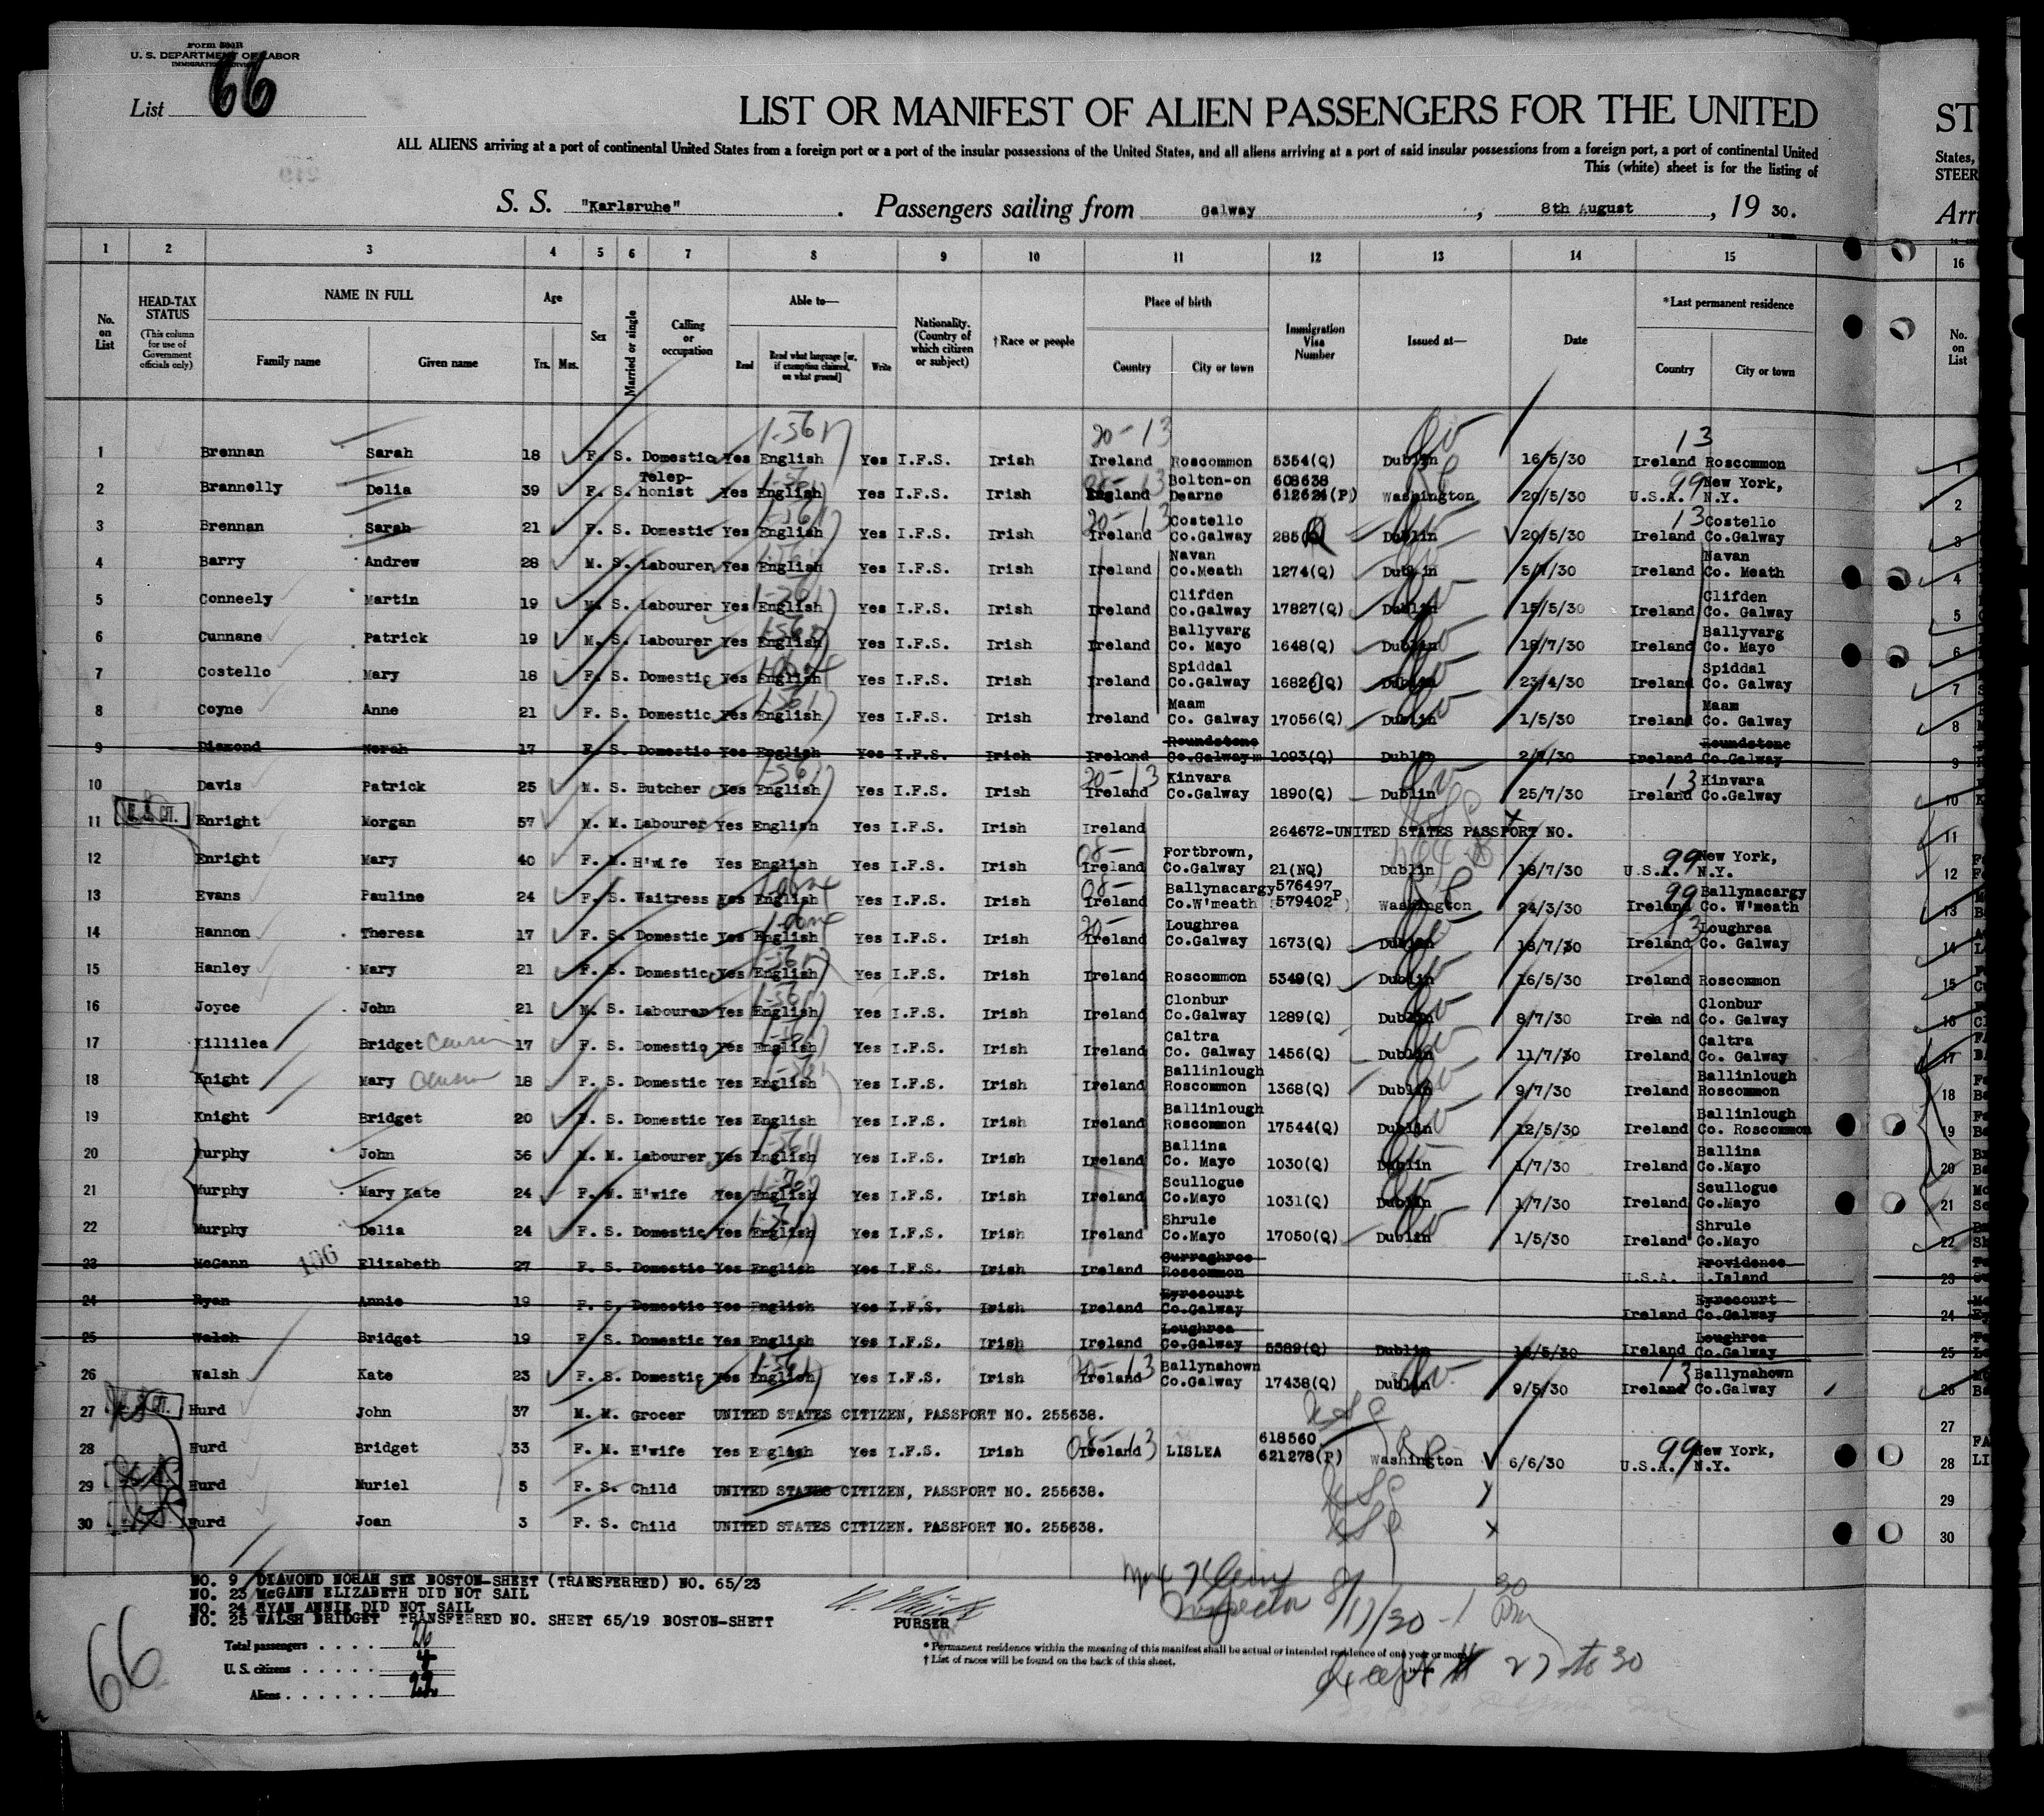 Form 500B
U. S. DEPARTMENT OF LABOR
IMMIGRATION SERVICE
List 66
LIST OR MANIFEST OF ALIEN PASSENGERS FOR THE UNITED
ALL ALIENS arriving at a port of continental United States from a foreign port or a port of the insular possessions of the United States, and all aliens arriving at a port of said insular possessions from a foreign port, a port of continental United
This (white) sheet is for the listing of
S. S. "Karlsruhe" . Passengers sailing from Galway , 8th August , 19 30.
ST
States,
STEER
Arri
1 2 3 4 5 6 7 8 9 10 11 12 13 14 15 16
No. on List HEAD-TAX STATUS (This column for use of Government officials only) NAME IN FULL Family name Given name Age Yrs. Mos. Sex Married or single Calling or occupation Able to— Read Read what language [or, if exemption claimed, on what ground] Write Nationality. (Country of which citizen or subject) † Race or people Place of birth Country City or town Immigration Visa Number Issued at— Date *Last permanent residence Country City or town No. on List
1 Brennan Sarah 18 F. S. Domestic Yes English Yes I.F.S. Irish Ireland Roscommon 5354(Q) Dublin 16/5/30 Ireland Roscommon
2 Brannelly Delia 39 F. S. Telep-honist Yes English Yes I.F.S. Irish England Bolton-on Dearne 608638 612624(P) Washington 20/5/30 U.S.A. 99 New York, N.Y.
3 Brennan Sarah 21 F. S. Domestic Yes English Yes I.F.S. Irish Ireland Costello Co.Galway 285 Q Dublin 20/5/30 Ireland Costello Co.Galway
4 Barry Andrew 28 M. S. Labourer Yes English Yes I.F.S. Irish Ireland Navan Co.Meath 1274(Q) Dublin 5/7/30 Ireland Navan Co. Meath
5 Conneely Martin 19 M. S. Labourer Yes English Yes I.F.S. Irish Ireland Clifden Co.Galway 17827(Q) Dublin 15/5/30 Ireland Clifden Co. Galway
6 Cunnane Patrick 19 M. S. Labourer Yes English Yes I.F.S. Irish Ireland Ballyvarg Co. Mayo 1648(Q) Dublin 18/7/30 Ireland Ballyvarg Co. Mayo
7 Costello Mary 18 F. S. Domestic Yes English Yes I.F.S. Irish Ireland Spiddal Co.Galway 16826(Q) Dublin 23/4/30 Ireland Spiddal Co. Galway
8 Coyne Anne 21 F. S. Domestic Yes English Yes I.F.S. Irish Ireland Maam Co. Galway 17056(Q) Dublin 1/5/30 Ireland Maam Co. Galway
9 Diamond Norah 17 F. S. Domestic Yes English Yes I.F.S. Irish Ireland Roundstone Co.Galway 1093(Q) Dublin 2/7/30 Ireland Roundstone Co.Galway
10 Davis Patrick 25 M. S. Butcher Yes English Yes I.F.S. Irish Ireland Kinvara Co.Galway 1890(Q) Dublin 25/7/30 Ireland Kinvara Co.Galway
11 Enright Morgan 57 M. M. Labourer Yes English Yes I.F.S. Irish Ireland 264672-UNITED STATES PASSPORT NO.
12 Enright Mary 40 F. M. H'wife Yes English Yes I.F.S. Irish Ireland Fortbrown, Co.Galway 21(NQ) Dublin 18/7/30 U.S.A. 99 New York, N.Y.
13 Evans Pauline 24 F. S. Waitress Yes English Yes I.F.S. Irish Ireland Ballynacargy Co.W'meath 576497 P 579402 Washington 24/3/30 Ireland 99 Ballynacargy Co. W'meath
14 Hannon Theresa 17 F. S. Domestic Yes English Yes I.F.S. Irish Ireland Loughrea Co.Galway 1673(Q) Dublin 18/7/30 Ireland Loughrea Co. Galway
15 Hanley Mary 21 F. S. Domestic Yes English Yes I.F.S. Irish Ireland Roscommon 5349(Q) Dublin 16/5/30 Ireland Roscommon
16 Joyce John 21 M. S. Labourer Yes English Yes I.F.S. Irish Ireland Clonbur Co.Galway 1289(Q) Dublin 8/7/30 Irela nd Clonbur Co. Galway
17 Killilea Bridget 17 F. S. Domestic Yes English Yes I.F.S. Irish Ireland Caltra Co. Galway 1456(Q) Dublin 11/7/30 Ireland Caltra Co. Galway
18 Knight Mary 18 F. S. Domestic Yes English Yes I.F.S. Irish Ireland Ballinlough Roscommon 1368(Q) Dublin 9/7/30 Ireland Ballinlough Roscommon
19 Knight Bridget 20 F. S. Domestic Yes English Yes I.F.S. Irish Ireland Ballinlough Roscommon 17544(Q) Dublin 12/5/30 Ireland Ballinlough Co. Roscommon
20 Murphy John 36 M. M. Labourer Yes English Yes I.F.S. Irish Ireland Ballina Co. Mayo 1030(Q) Dublin 1/7/30 Ireland Ballina Co.Mayo
21 Murphy Mary Kate 24 F. M. H'wife Yes English Yes I.F.S. Irish Ireland Scullogue Co.Mayo 1031(Q) Dublin 1/7/30 Ireland Scullogue Co.Mayo
22 Murphy Delia 24 F. S. Domestic Yes English Yes I.F.S. Irish Ireland Shrule Co.Mayo 17050(Q) Dublin 1/5/30 Ireland Shrule Co.Mayo
23 McGann 106 Elizabeth 27 F. S. Domestic Yes English Yes I.F.S. Irish Ireland Curraghroe Roscommon U.S.A. Providence R.Island
24 Ryan Annie 19 F. S. Domestic Yes English Yes I.F.S. Irish Ireland Eyrecourt Co.Galway Ireland Eyrecourt Co.Galway
25 Walsh Bridget 19 F. S. Domestic Yes English Yes I.F.S. Irish Ireland Loughrea Co.Galway 5389(Q) Dublin Ireland Loughrea Co.Galway
26 Walsh Kate 23 F. S. Domestic Yes English Yes I.F.S. Irish Ireland Ballynahown Co.Galway 17438(Q) Dublin 9/5/30 Ireland Ballynahown Co.Galway
27 Hurd John 37 M. M. Grocer UNITED STATES CITIZEN, PASSPORT NO. 255638.
28 Hurd Bridget 33 F. M. H'wife Yes English Yes I.F.S. Irish Ireland LISLEA 618560 621278(P) Washington 6/6/30 U.S.A. 99 New York, N.Y.
29 Hurd Muriel 5 F. S. Child UNITED STATES CITIZEN, PASSPORT NO. 255638.
30 Hurd Joan 3 F. S. Child UNITED STATES CITIZEN. PASSPORT NO. 255638.
NO. 9 DIAMOND NORAH SEE BOSTON-SHEET (TRANSFERRED) NO. 65/23
NO. 23 McGANN ELIZABETH DID NOT SAIL
NO. 24 RYAN ANNIE DID NOT SAIL
NO. 25 WALSH BRIDGET TRANSFERRED NO. SHEET 65/19 BOSTON-SHETT
PURSER
Inspector
Total passengers . . . . 26
U. S. citizens . . . . . 4
Aliens . . . . . . 22
66
* Permanent residence within the meaning of this manifest shall be actual or intended residence of one year or more.
† List of races will be found on the back of this sheet.
except 27 to 30